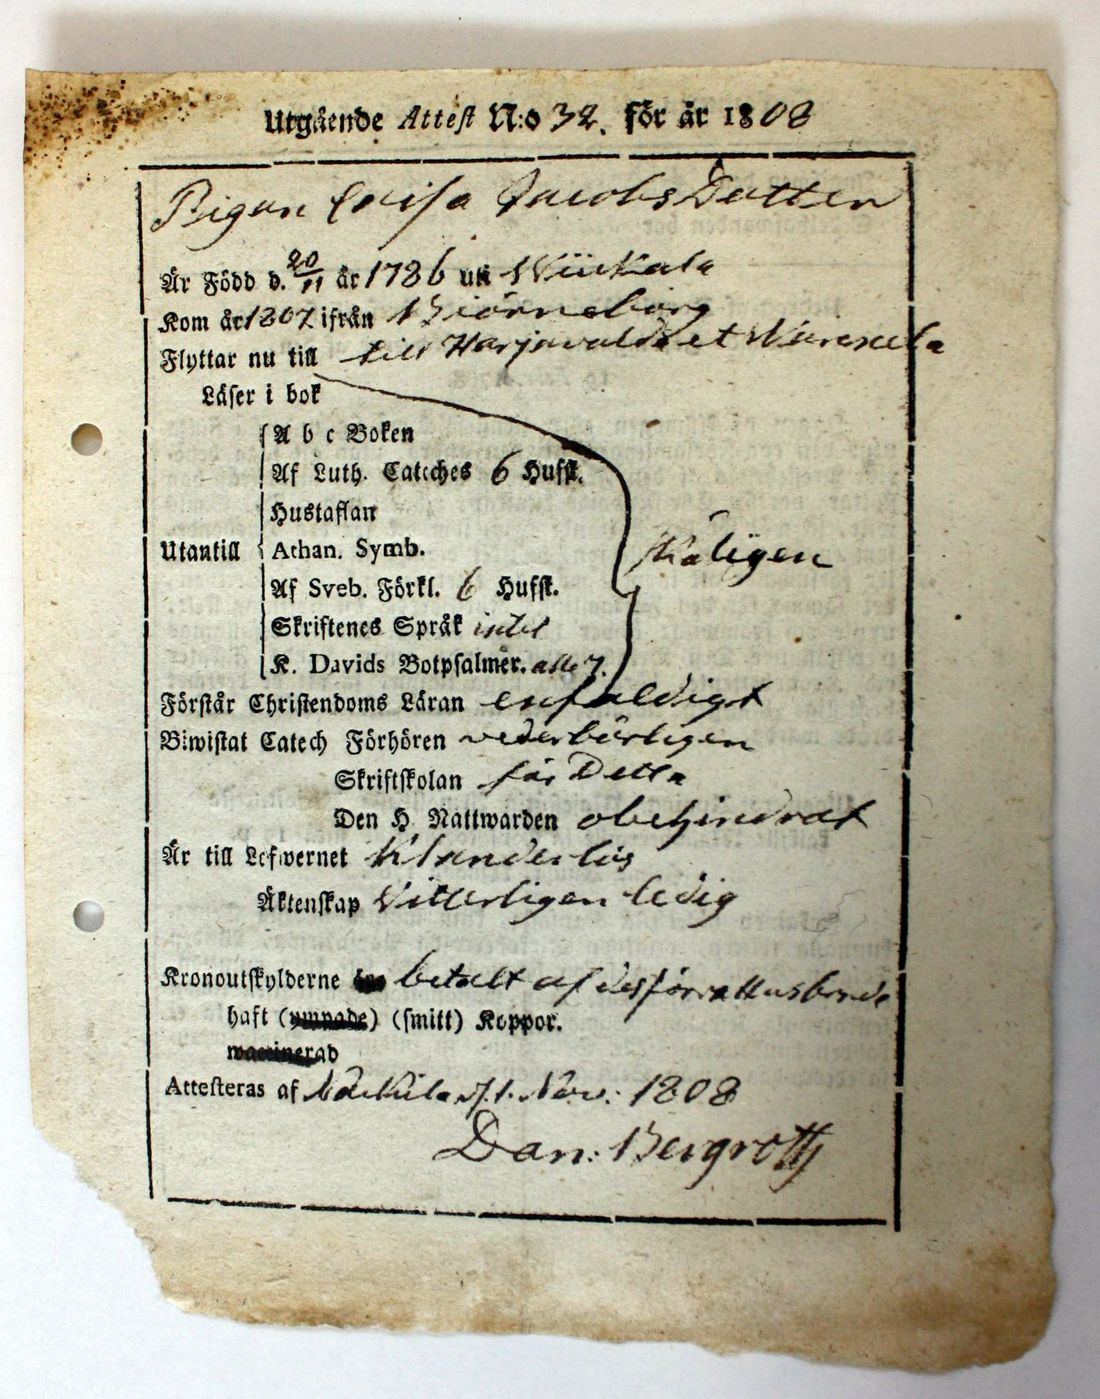 Utgående Attest N:o 32. för år 1808
Pigan Lovisa Jacobs Dotter
Är Född d. 20/11 år 1786 uti
Kom år 1807 ifrån Björneborg
Flyttar nu till till Harjavalda et
Läser i bok
A b c Boken
Af Luth. Catches 6 Hufst.
Hustaflan
Utantill Athan. Symb. skäligen
Af Sveb. Förkl. 6 Hufst.
Skriftenes Språk intet
K. Davids Botpsalmer. alle 7.
Förstår Christendoms Läran enfaldigt
Biwistat Catech Förhören vederbörligen
Skriftskolan för Detta
Den H. Nattwarden obehindrat
Är till Lefwernet Klanderlös
Äktenskap Vitterligen ledig
Kronoutskylderne betalt af des förra Husbonde
haft (ympade) (smitt) Koppor.
waccinerad
Attesteras af d. 1. Nov: 1808
Dan: Bergroth